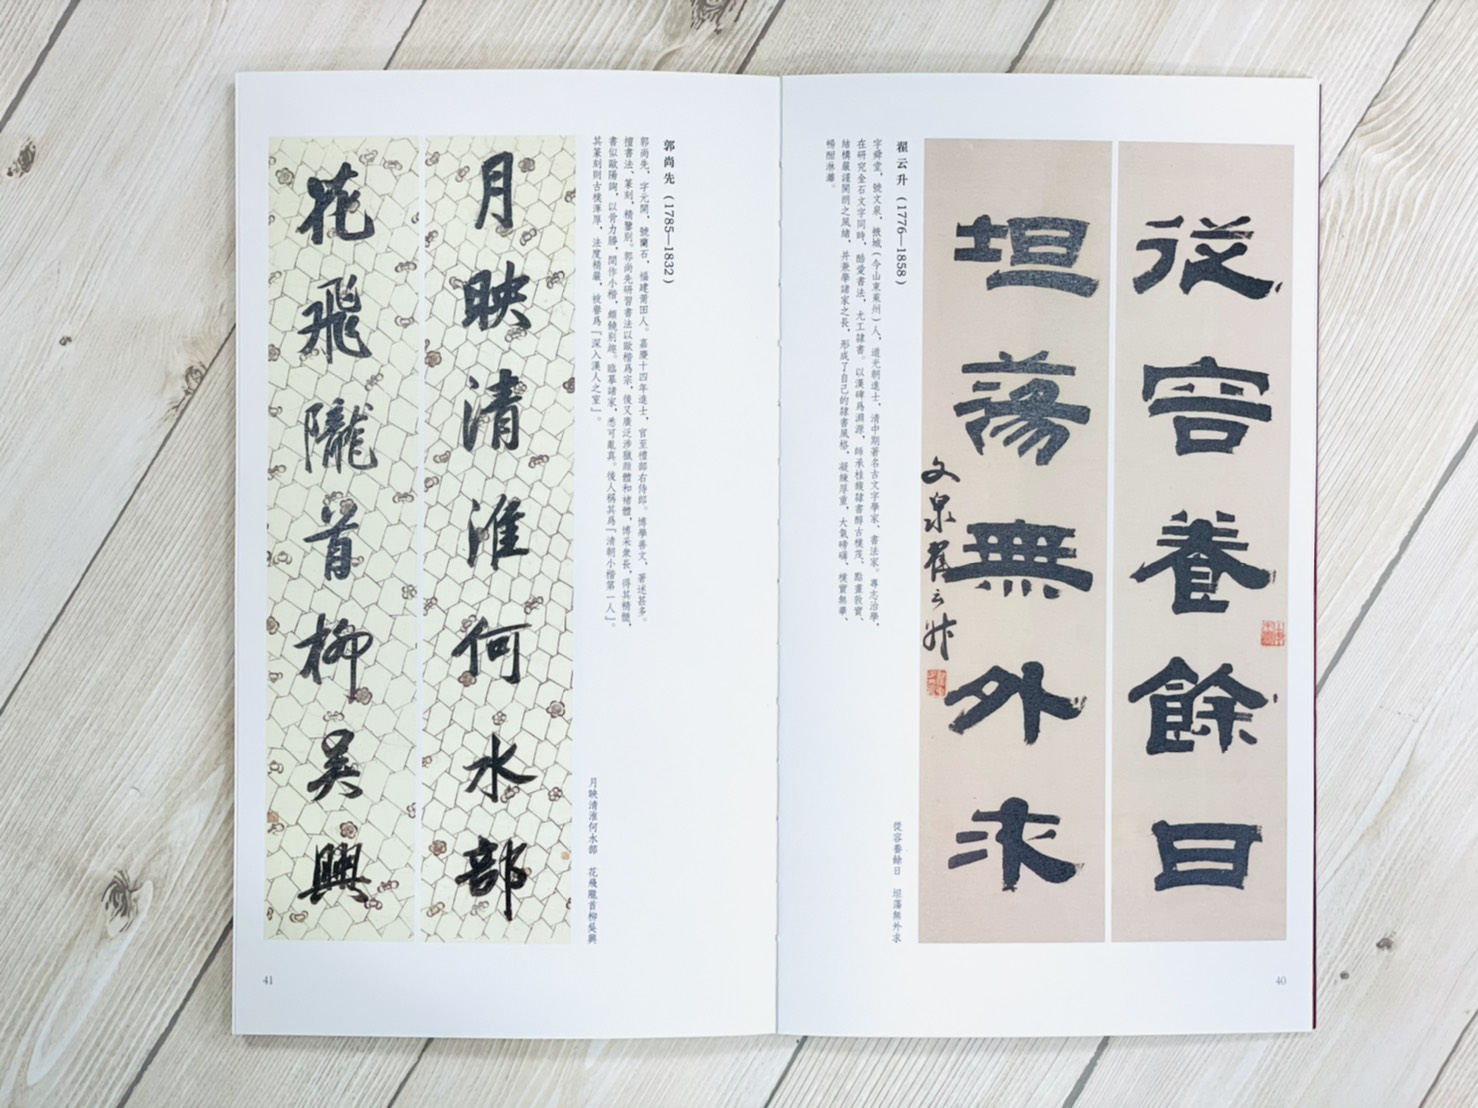 從容養餘日
坦蕩無外求
文泉翟云升
翟云升（1776—1858）
字舜堂，號文泉，掖城（今山東萊州）人，道光朝進士，清中期著名古文字學家、書法家。專志治學，
在研究金石文字同時，酷愛書法，尤工隸書。以漢碑爲淵源，師承桂馥隸書醇古樸茂、點畫敦實、
結構嚴謹開朗之風緒，并兼學諸家之長，形成了自己的隸書風格，凝練厚重，大氣磅礴，樸實無華、
暢酣淋灕。
從容養餘日　坦蕩無外求
40
郭尚先（1785—1832）
郭尚先，字元開，號蘭石，福建莆田人。嘉慶十四年進士，官至禮部右侍郎。博學善文，著述甚多。
擅書法、篆刻，精鑒別。郭尚先研習書法以歐楷爲宗，後又廣泛涉獵顔體和褚體，博采衆長，得其精髓，
書似歐陽詢，以骨力勝，間作小楷，頗饒別趣。臨摹諸家，悉可亂真。後人稱其爲「清朝小楷第一人」。
其篆刻則古樸渾厚，法度精嚴，被譽爲「深入漢人之室」。
月映清淮何水部　花飛隴首柳吳興
月映清淮何水部
花飛隴首柳吳興
41